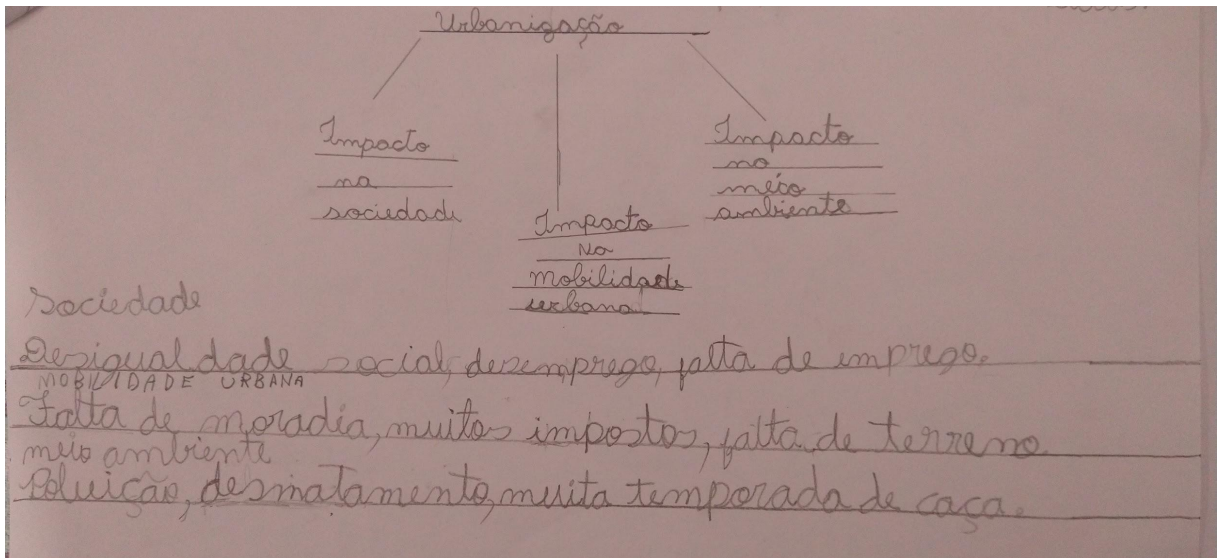 Urbanização
Impacto
na
sociedade
Impacto
na
mobilidade
urbana
Impacto
no
meio
ambiente
Sociedade
Desigualdade social, desemprego, falta de imprego.
MOBILIDADE URBANA
Falta de moradia, muitos impostos, falta de terreno.
meio ambiente
Poluição, desmatamento, muita temporada de caça.